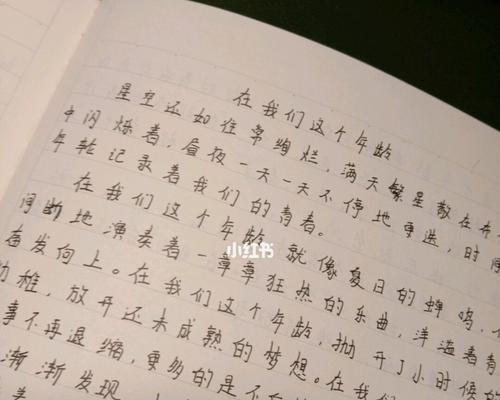 在我们这个年龄
星空还如往常绚烂，满天繁星散在
中闪烁着，昼夜一天一天不停地更迭，时间
年轮记录着我们的青春。
在我们这个年龄，就像夏日的蝉鸣，
间断地演奏着一章章狂热的乐曲，洋溢着青
奋发向上。在我们这个年龄，抛开了小时候的
幼稚，放开还未成熟的梦想。在我们
事不再退缩，更多的是不
渐渐发现
小红书